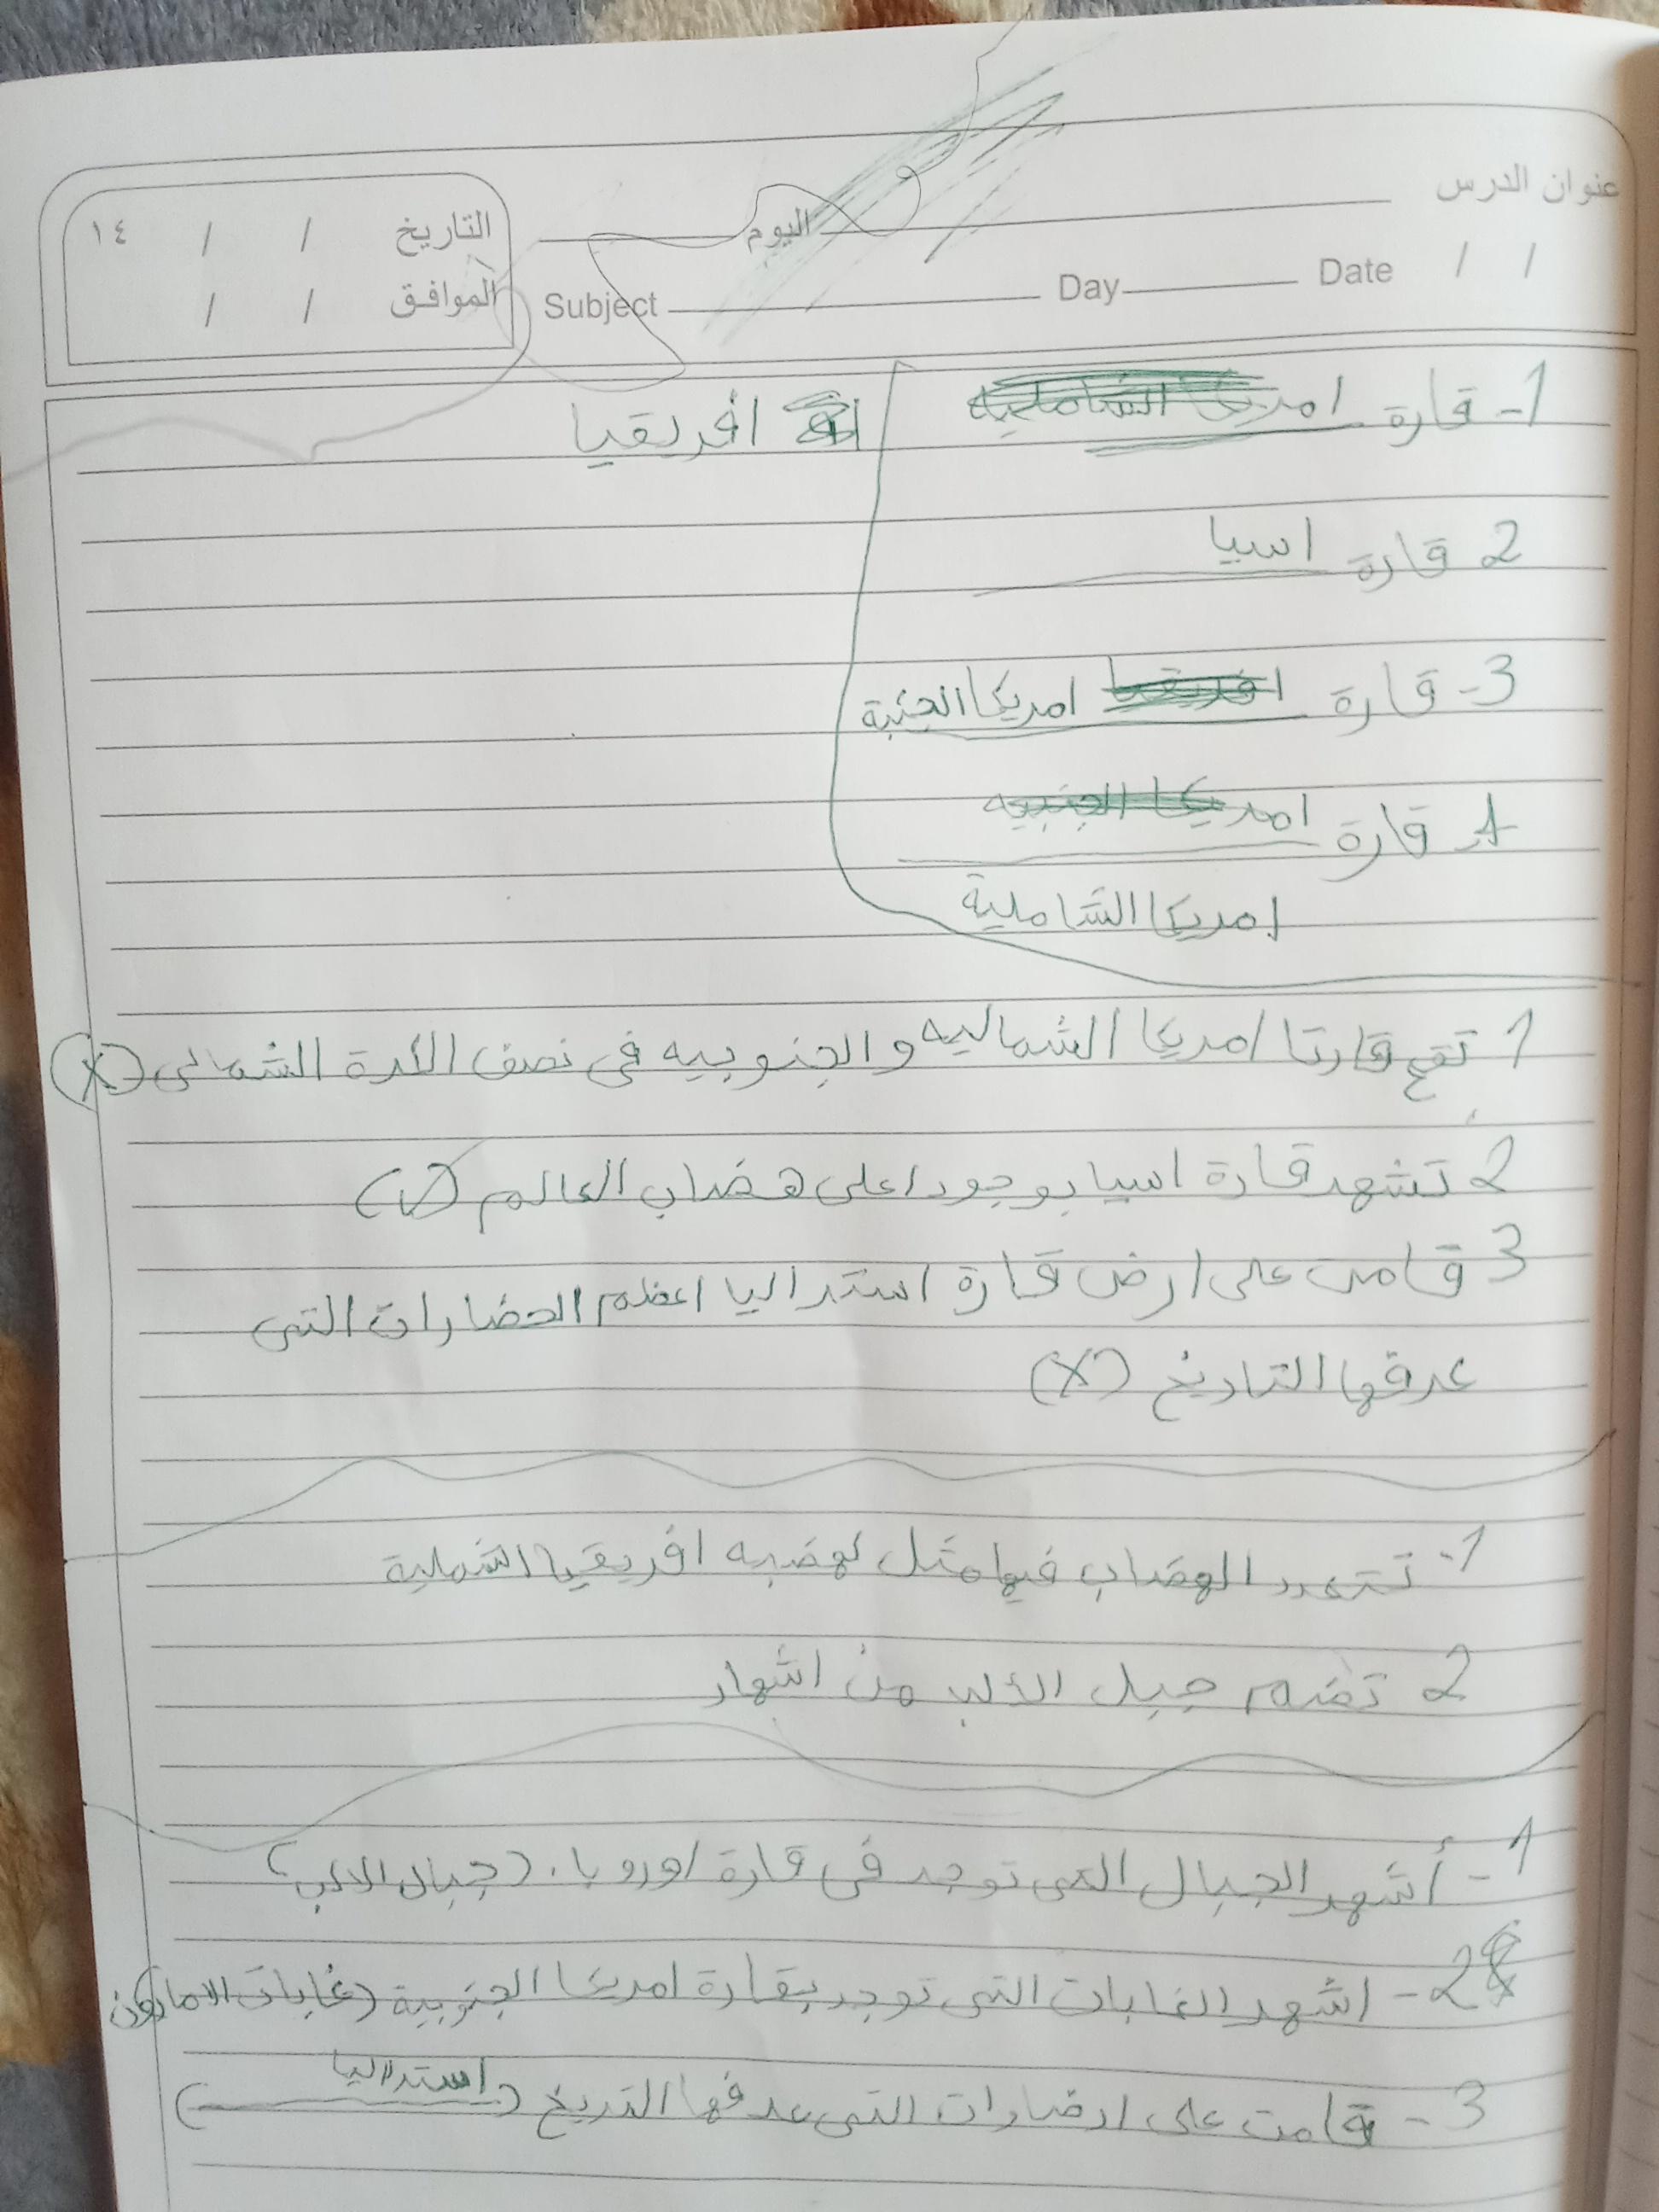 عنوان الدرس اليوم التاريخ / / ١٤
Date / / Day Subject الموافق / /
1- قارة امريكا الشاملية افريقيا
2 قارة اسيا
3- قارة افريقيا امريكا الجنبية
4- قارة امريكا الجنبيه
امريكا الشاملية
1 تقع قارتا امريكا الشماليه والجنوبيه في نصف الكرة الشمالي (X)
2 تشهد قارة اسيا بوجود اعلى هضاب العالم (✓)
3 قامت على ارض قارة استراليا اعظم الحضارات التي
عرفها التاريخ (X)
1- تتعدد الهضاب فيها مثل لهضبه افريقيا الشملية
2 تضم جبل الألب من اشهار
1- أشهر الجبال التي توجد في قارة اوروبا. (جبال الالب)
2- اشهر الغابات التي توجد بقارة امريكا الجنوبية (غابات الامازون
3- قامت على ارضارات التي عرفها التريخ (استراليا)